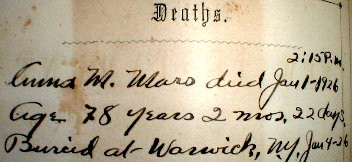 Deaths.
2:15 P.m.
Anna M. Mars died Jan 1-1926
Age 78 years 2 mos, 22 days,
Buried at Warwick, NY, Jan 4-26